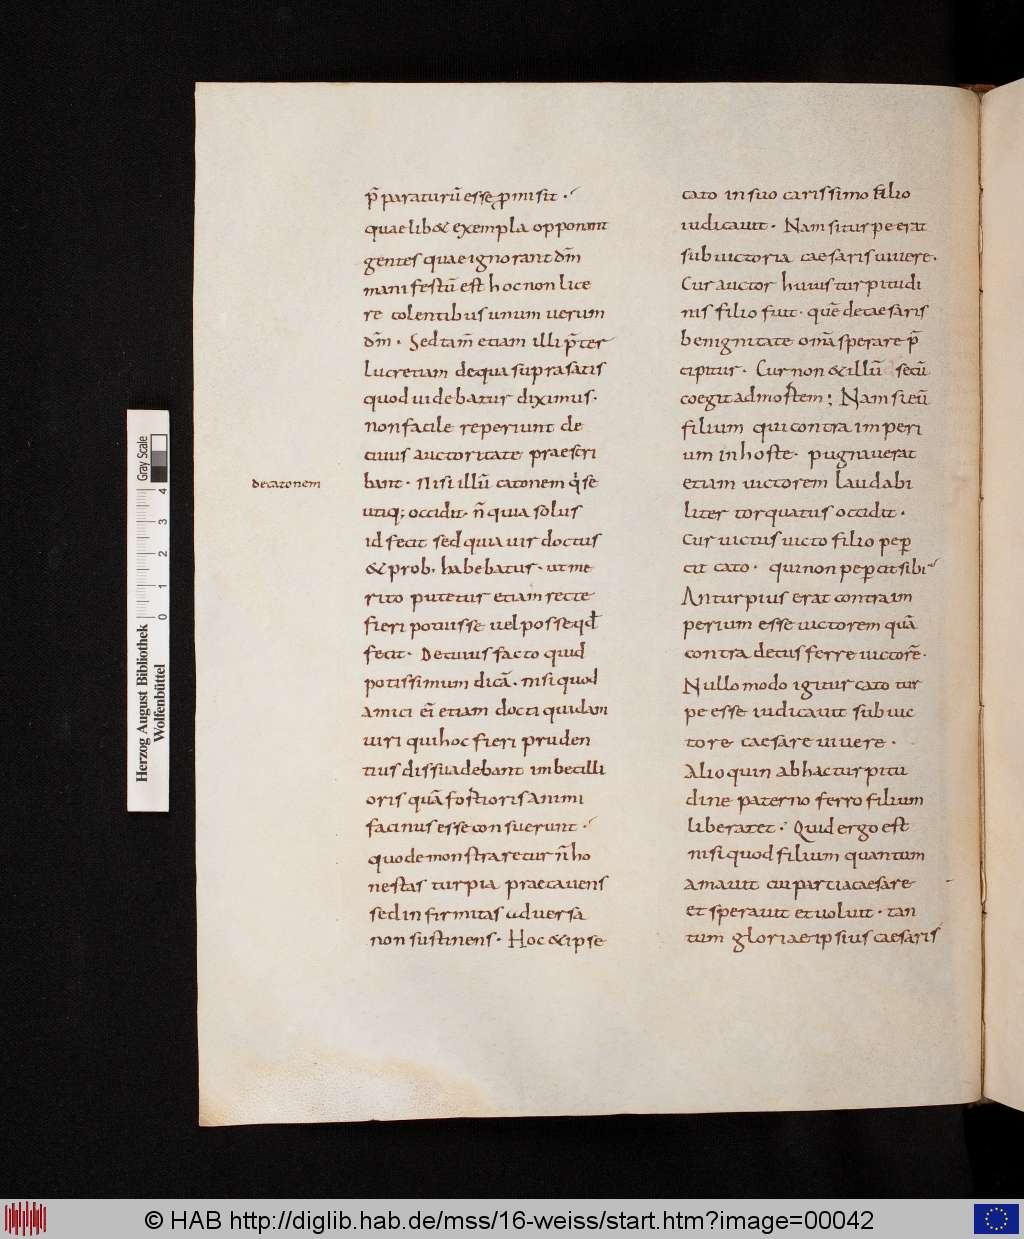 p̄paraturū esse ꝓmisit ·
quaelib& exempla opponant
gentes quae ignorant dm̄
manifestū est hoc non lice
re colentibus unum uerum
dm̄ · Sed tam̄ etiam illi p̄ter
lucretiam de qua supra satis
quod uidebatur diximus ·
non facile reperiunt de
cuius auctoritate praescri
decatonem
bant · Nisi illū catonem q̇ se
utiq; occidit · n̄ quia solus
id fecit sed quia uir doctus
& prob · habebatur · ut me
rito putetur etiam recte
fieri potuisse uel posse qđ
fecit · De cuius facto quid
potissimum dicā · nisi quod
amici eī etiam docti quidam
uiri qui hoc fieri pruden
tius dissuadebant imbecilli
oris quā fortioris animi
facinus esse consuerunt ·
quo demonstraretur n̄ ho
nestas turpia praecauens
sed infirmitas aduersa
non sustinens · Hoc & ipse
cato in suo carissimo filio
iudicauit · Nam si turpe erat
sub uictoria caesaris uiuere ·
Cur auctor huius turpitudi
nis filio fuit · quē de caesaris
benignitate omā sperare p̄
cipitur · Cur non & illū secū
coegit ad mortem ; Nam si eū
filium qui contra imperi
um in hoste · pugnauerat
etiam uictorem laudabi
liter torquatus occidit ·
Cur uictus uicto filio peꝑ
cit cato · qui non peꝑcit sibi
An turpius erat contra im
perium esse uictorem quā
contra decus ferre uictorē ·
Nullo modo igitur cato tur
pe esse iudicauit sub uic
tore caesare uiuere ·
Alioquin ab hac turpitu
dine paterno ferro filium
liberaret · Quid ergo est
nisi quod filium quantum
amauit cui parci a caesare
et sperauit et uoluit · tan
tum gloriae ipsius caesaris
Herzog August Bibliothek
Wolfenbüttel
Gray Scale
0 1 2 3 4
© HAB http://diglib.hab.de/mss/16-weiss/start.htm?image=00042